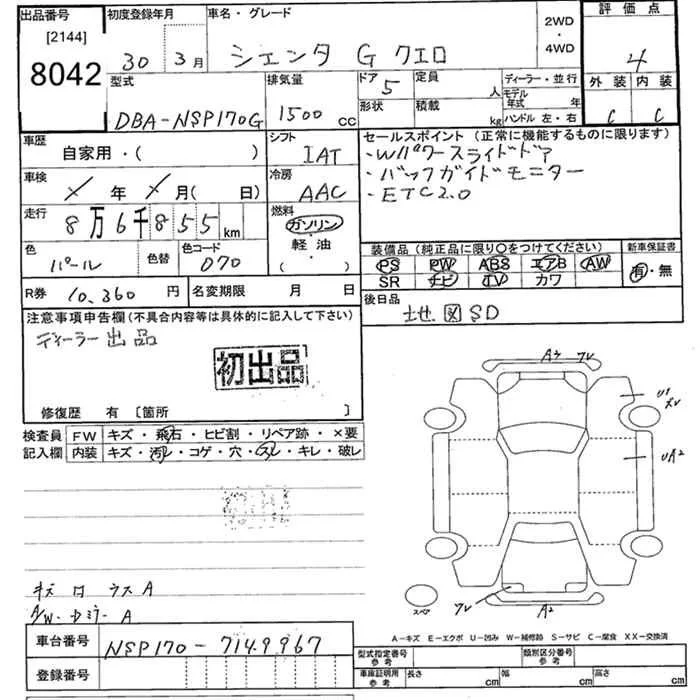 出品番号 [2144] 8042
初度登録年月 30年 3月
車名・グレード シエンタ G クエロ
2WD・4WD
評価点 4
型式 DBA-NSP170G
排気量 1500 cc
ドア 5
形状
定員 人
積載 kg
ディーラー・並行
モデル年式 年
ハンドル 左・右
外装 C 内装 C
車歴 自家用・( )
シフト IAT
車検 × 年 × 月( 日)
冷房 AAC
走行 8万6千855 km
燃料 ガソリン・軽油・( )
色 パール 色替 色コード 070
セールスポイント (正常に機能するものに限ります)
・Wパワースライドドア
・バックガイドモニター
・ETC2.0
装備品 (純正品に限り○をつけてください)
PS PW ABS エアB AW
SR ナビ TV カワ
新車保証書 有・無
R券 10,360 円 名変期限 月 日
後日品 地図SD
注意事項申告欄 (不具合内容等は具体的に記入して下さい)
ディーラー出品
初出品
修復歴 有 [箇所 ]
検査員記入欄
FW キズ・飛石・ヒビ割・リペア跡・×要
内装 キズ・汚レ・コゲ・穴・スレ・キレ・破レ
A3 フレ
U1
UA2
キズ ロ ウス A
A/W・ドミラー A
スペア フレ A2
A－キズ E－エクボ U－凹み W－補修跡 S－サビ C－腐食 XX－交換済
車台番号 NSP170-7149967
登録番号
型式指定番号 参考 類別区分番号 参考
車庫証明用 参考 長さ cm 幅 cm 高さ cm